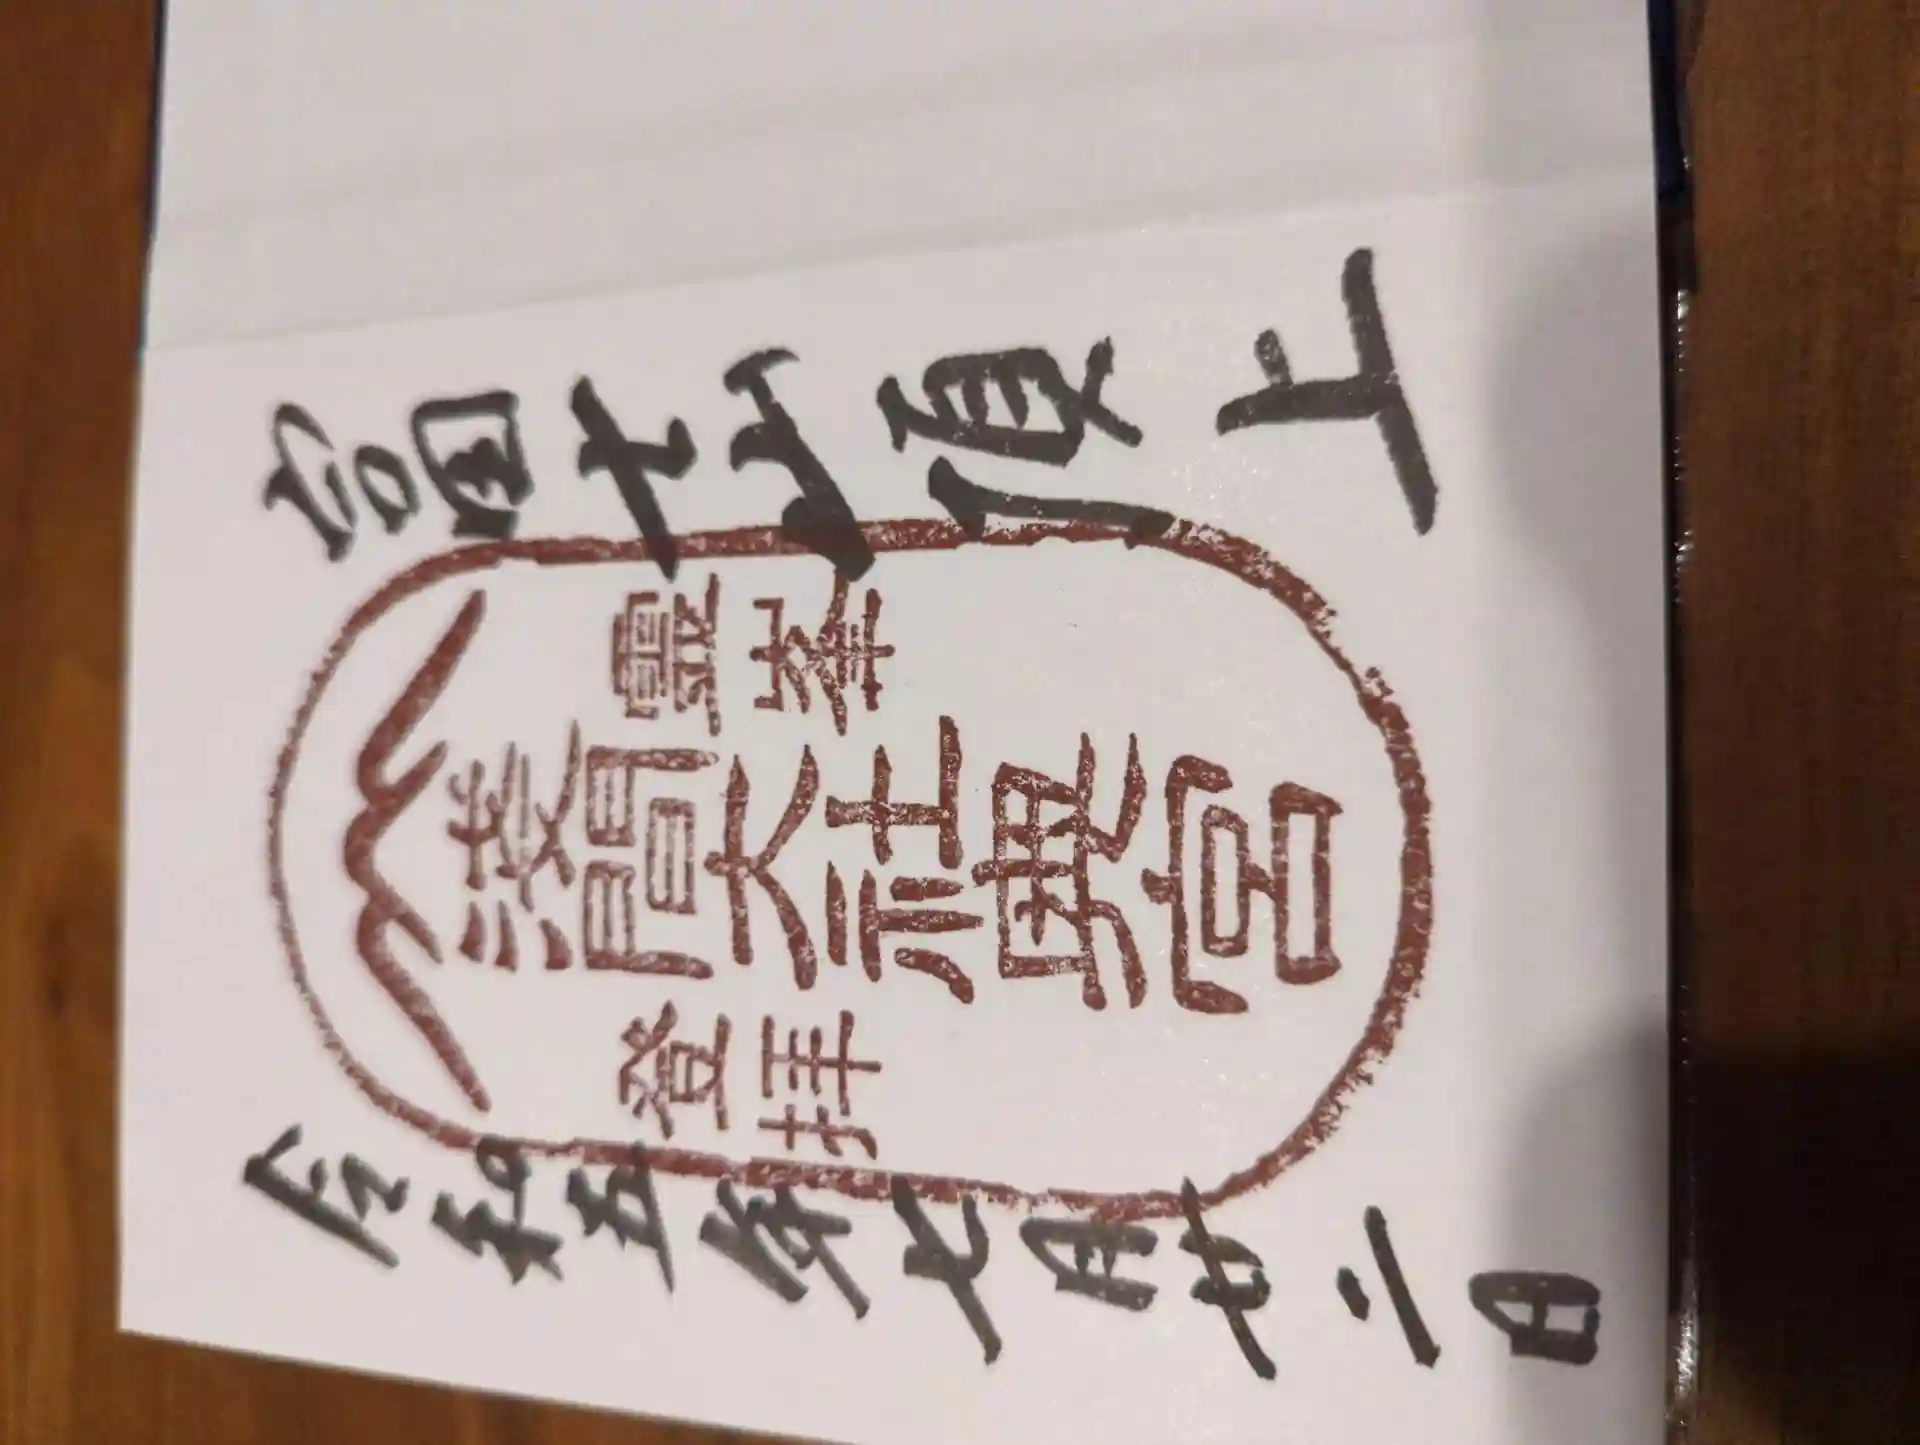 富士山頂上
靈峯
淺間大社奥宮
登拝
令和五年七月廿二日